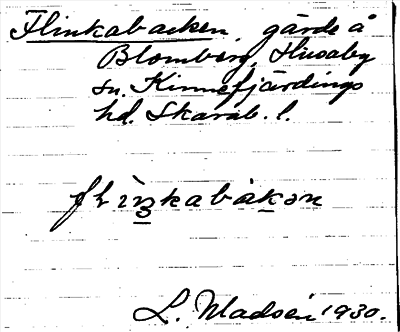 Flinkabacken, gärde å
Blomberg, Husaby
sn. Kinnefjärdings
hd. Skarab. l.
L. Madsén 1930.